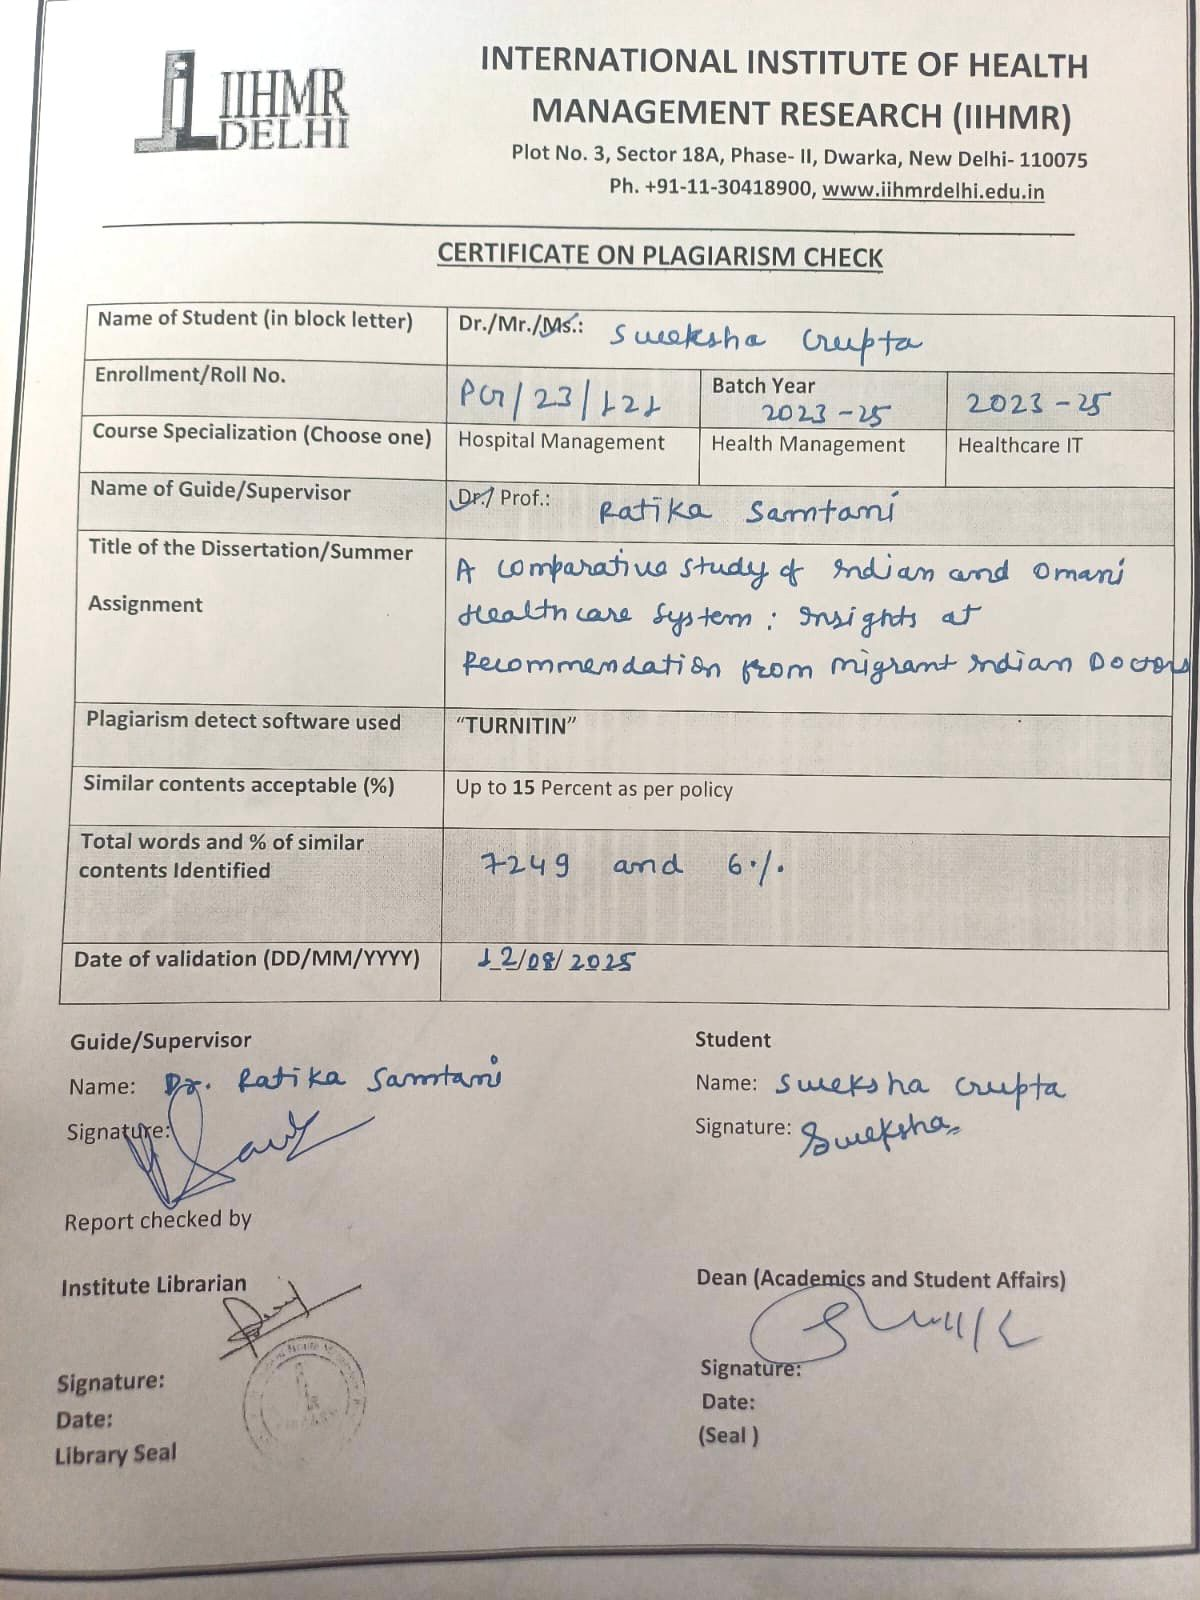 IIHMR
DELHI
INTERNATIONAL INSTITUTE OF HEALTH
MANAGEMENT RESEARCH (IIHMR)
Plot No. 3, Sector 18A, Phase- II, Dwarka, New Delhi- 110075
Ph. +91-11-30418900, www.iihmrdelhi.edu.in
CERTIFICATE ON PLAGIARISM CHECK
Name of Student (in block letter) Dr./Mr./Ms.: Sweksha Gupta
Enrollment/Roll No. PG/23/121 Batch Year 2023-25 2023-25
Course Specialization (Choose one) Hospital Management Health Management Healthcare IT
Name of Guide/Supervisor Dr./ Prof.: Ratika Samtani
Title of the Dissertation/Summer
Assignment
A comparative study of Indian and Omani
Healthcare System: Insights at
Recommendation from migrant Indian Doctors
Plagiarism detect software used "TURNITIN"
Similar contents acceptable (%) Up to 15 Percent as per policy
Total words and % of similar
contents Identified
7249 and 6%
Date of validation (DD/MM/YYYY) 12/08/2025
Guide/Supervisor
Name: Dr. Ratika Samtani
Signature:
Student
Name: Sweksha Gupta
Signature: Sweksha
Report checked by
Institute Librarian
Signature:
Date:
Library Seal
Dean (Academics and Student Affairs)
Signature:
Date:
(Seal )